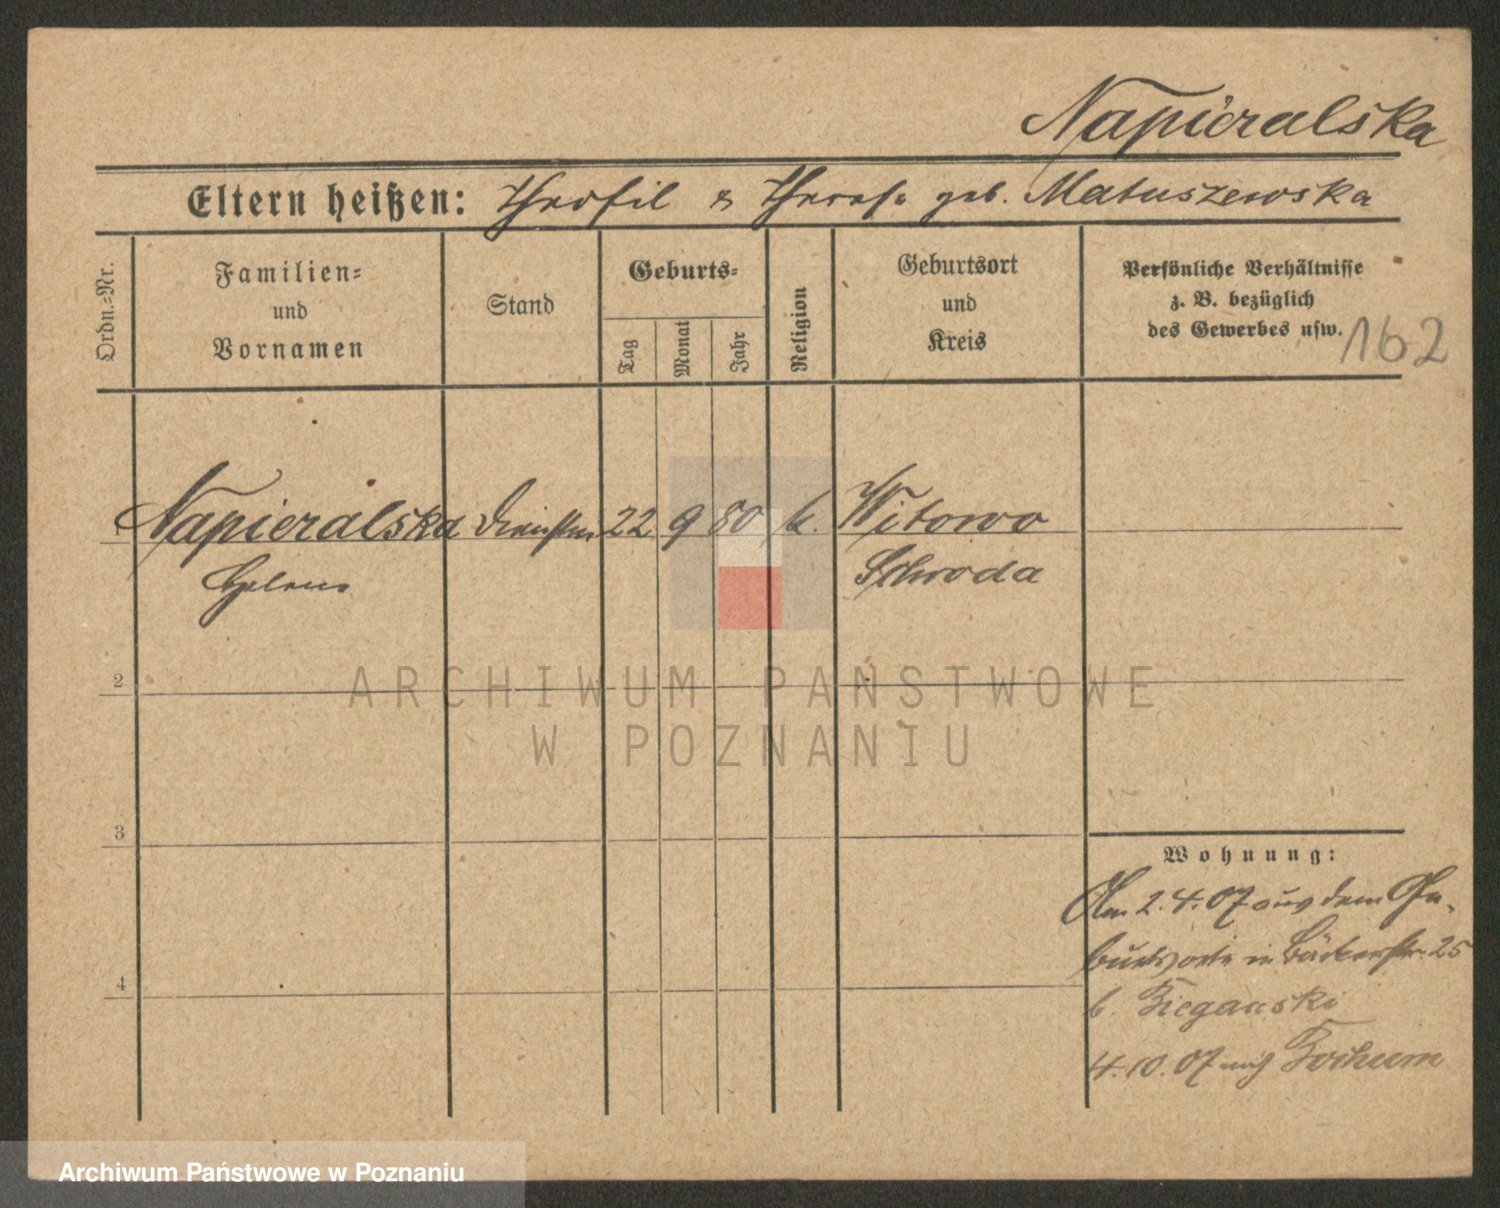 Napieralska
Eltern heißen: Theofil & Therese geb. Matuszewska
Ordn.=Nr.
Familien=
und
Vornamen
Stand
Geburts=
Tag
Monat
Jahr
Religion
Geburtsort
und
Kreis
Persönliche Verhältnisse
z. B. bezüglich
des Gewerbes usw.
162
1 Napieralska 22 9 80 k. Witowo
Helene Schroda
2
ARCHIWUM PAŃSTWOWE
W POZNANIU
3
Wohnung:
Am 2.4.07 aus dem Ge-
burtsorte in Bäckerstr. 25
b. Bieganski
4
4.10.07 nach Bochum
Archiwum Państwowe w Poznaniu